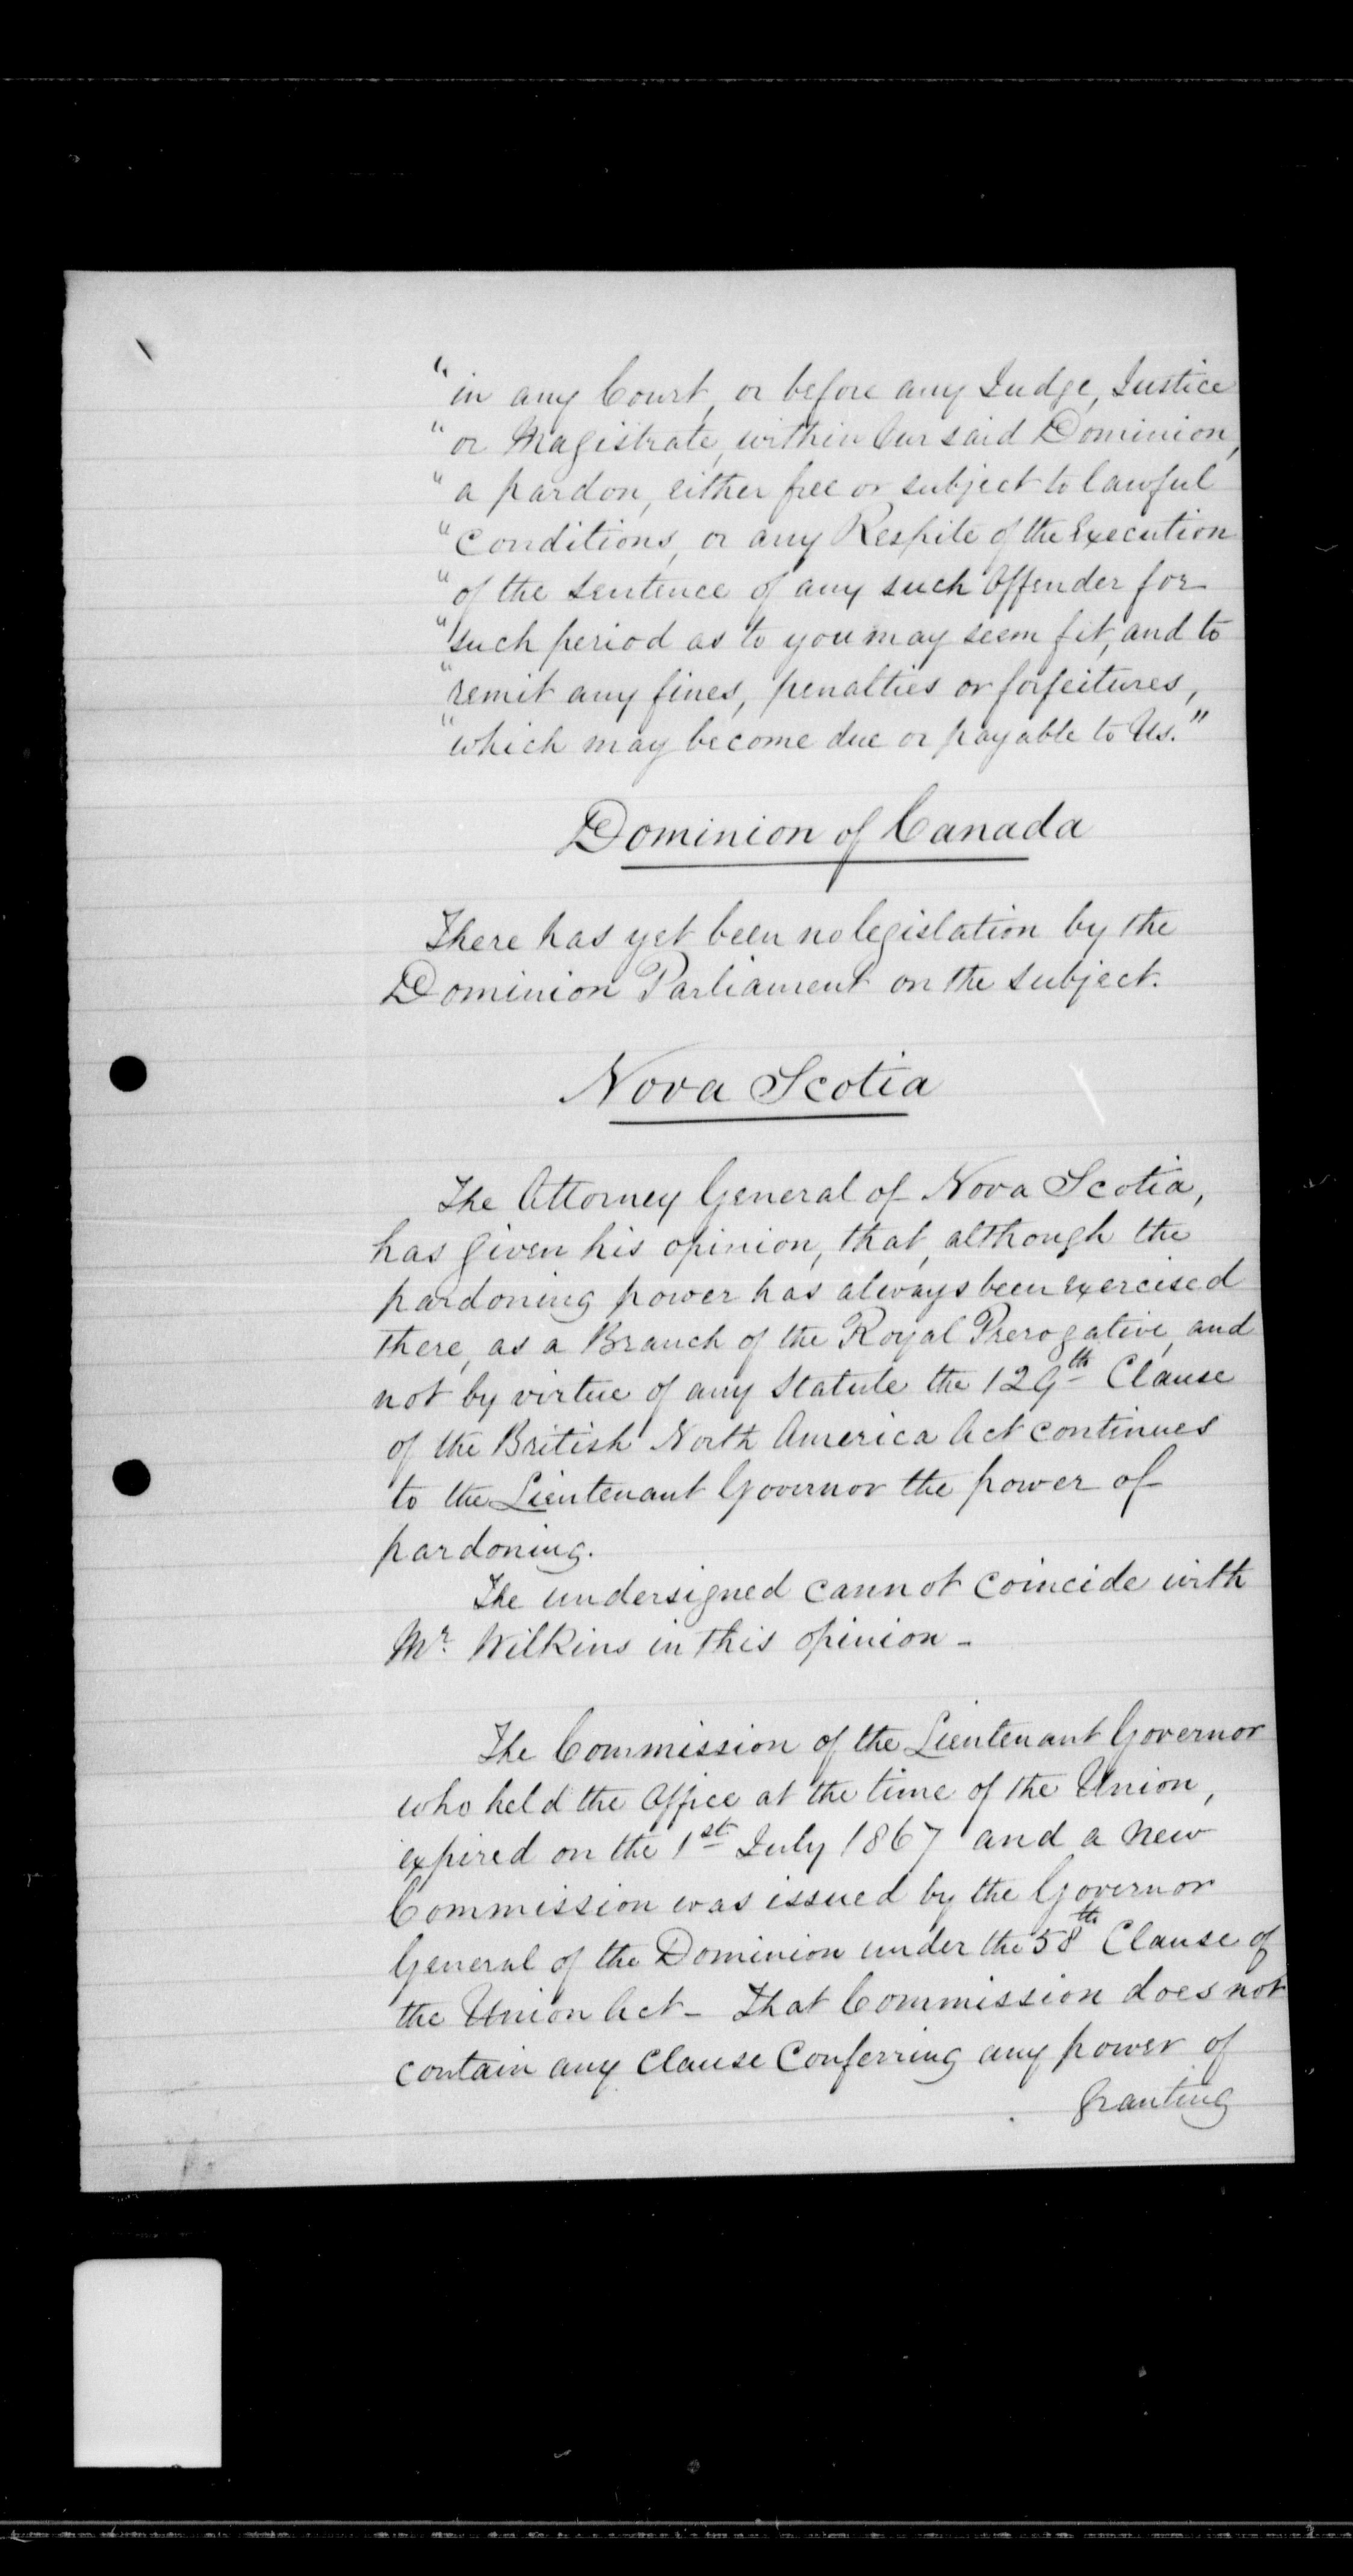 "in any Court, or before any Judge, Justice
"or Magistrate, within Our said Dominion,
"a pardon, either free or subject to lawful
"conditions, or any Respite of the Execution
"of the Sentence of any such Offender for
"such period as to you may seem fit, and to
"remit any fines, penalties or forfeitures,
"which may become due or payable to Us."
Dominion of Canada
There has yet been no legislation by the
Dominion Parliament on the subject.
Nova Scotia
The Attorney General of Nova Scotia,
has given his opinion, that, although the
pardoning power has always been exercised
there, as a Branch of the Royal Prerogative, and
not by virtue of any Statute the 129th Clause
of the British North America Act continues
to the Lieutenant Governor the power of
pardoning.
The undersigned cannot coincide with
Mr. Wilkins in this opinion -
The Commission of the Lieutenant Governor
who held the Office at the time of the Union,
expired on the 1st July 1867 and a new
Commission was issued by the Governor
General of the Dominion under the 58th Clause of
the Union Act - That Commission does not
contain any Clause Conferring any power of
granting